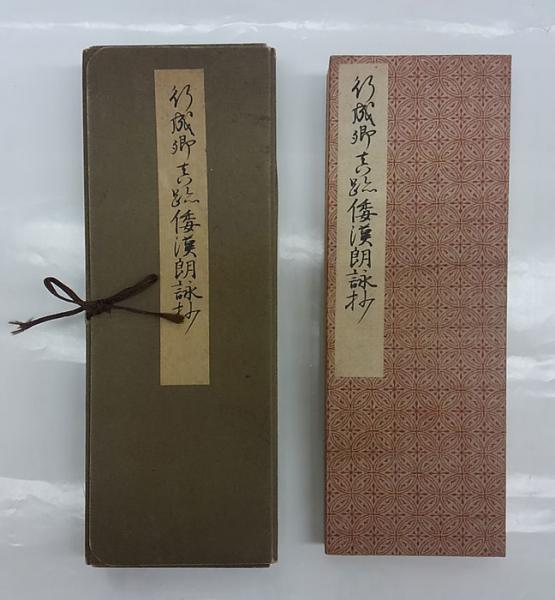 行成卿真跡倭漢朗詠抄
行成卿真跡倭漢朗詠抄